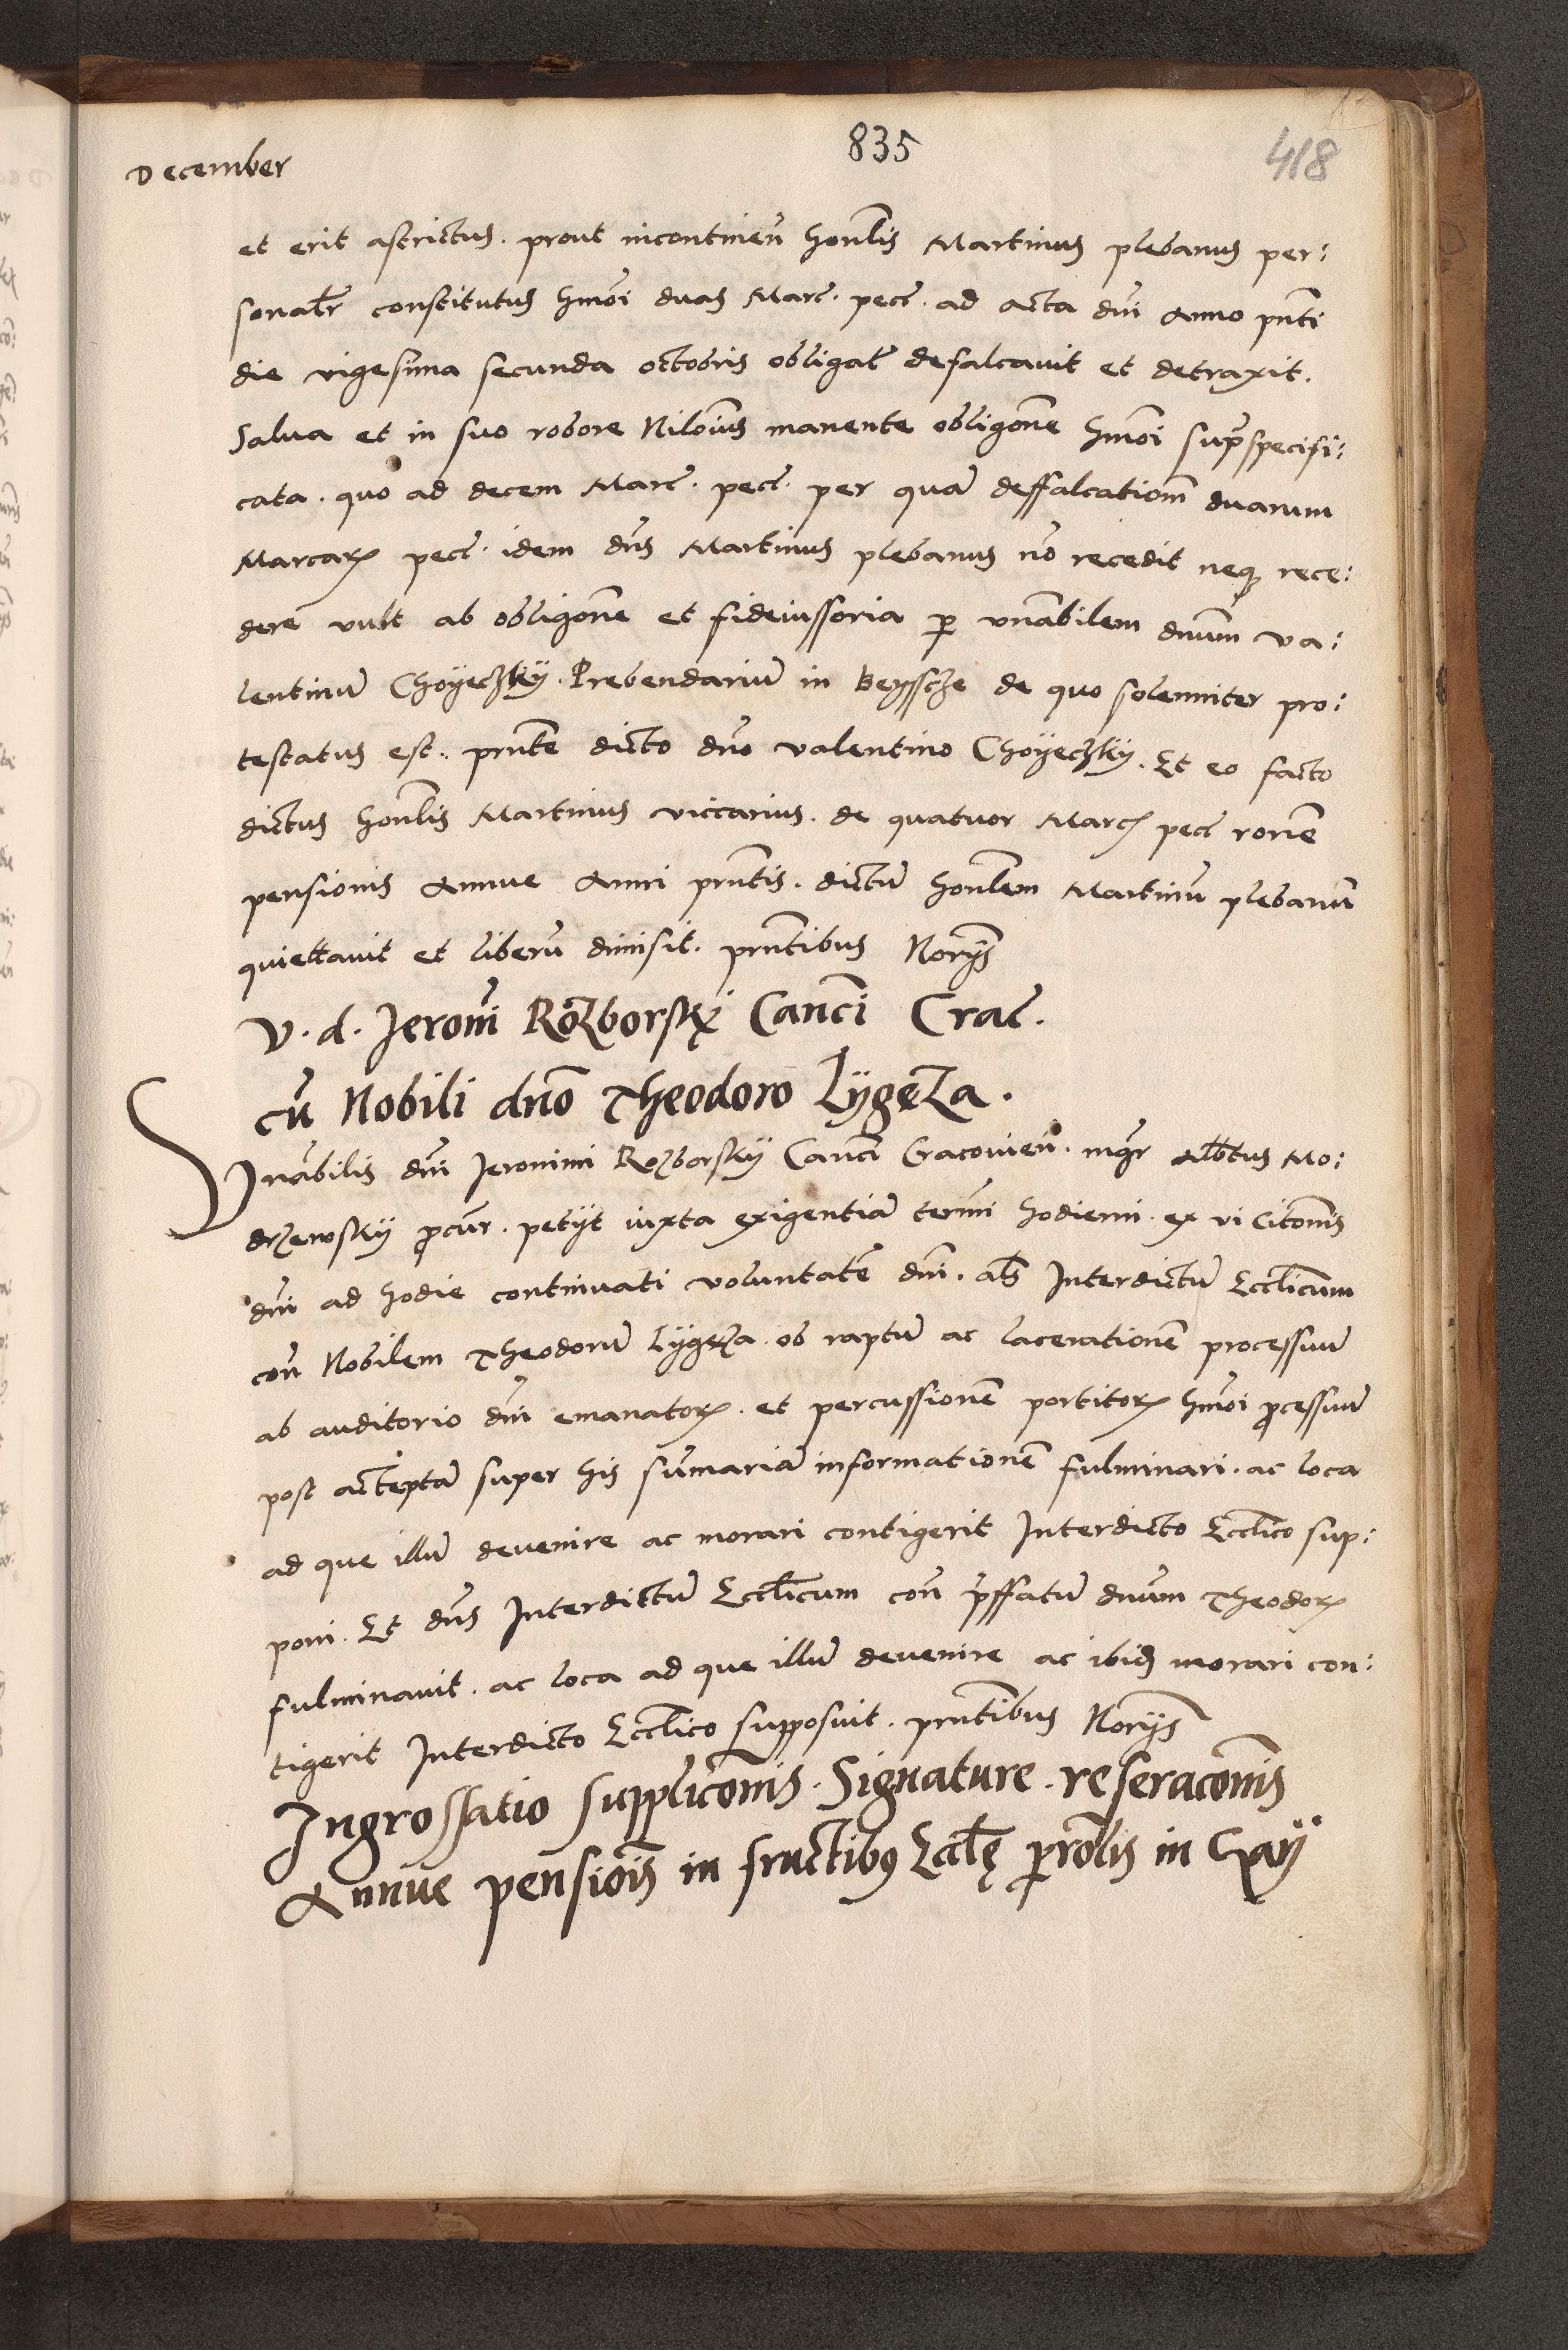 835
418
December
et erit astrictus. prout incontinen̄ honl̄is Martinus plebanus per:
sonalr̄ constitutus hm̄oi duas Marc̄. pec̄. ad acta dn̄i Anno pn̄ti
die vigesima secunda octobris obligat̄ defalcauit et detraxit.
Salua et in suo robore Nilom̄ius manente obligōne hm̄oi sup̄specifi:
cata. quo ad decem Marc̄. pec̄. per quā deffalcationm̄ duarum
Marcarꝝ pec̄. idem dn̄s Martinus plebanus nō recedit neqꝫ rece:
dere vult ab obligōne et fideiussoria ꝑ vnābilem dnūm va:
lentinū Choÿeczkÿ. Prebendariū in Beyssche de quo solenniter pro:
testatus est. pn̄tē dicto dn̄o valentino Choÿeczkÿ. Et eo facto
dictus honl̄is Martinus viccarius. de quatuor Marcꝝ pec̄ ronē
pensionis Annue Anni pn̄tis. dictū honl̄em Martinū plebanū
quiettauit et liberū dimisit. pn̄tibus Norÿs̄
V. d. Jeronī Rozborskÿ Canc̄i Crac̄.
cū Nobili dnō Theodoro Lÿgęza.
Vnābilis dn̄i Jeronimi Rozborskÿ Canc̄i Cracouien̄. mg̅r Alb̄tus Mo:
drzewskÿ ꝓcur̄. petÿt iuxta exigentiā term̄i hodierni. ex vi Citōnis
dn̄i ad hodie continuati voluntatē dn̄i. al̄s Interdictū Eccl̄icum
con̄ Nobilem Theodorū Lÿgęza. ob raptū ac lacerationē processuū
ab auditorio dn̄i emanatorꝝ. et percussionē portitorꝝ hm̄oi ꝓcessuū
post acceptā super his sūmariā informationē fulminari. ac loca
ad que illū deuenire ac morari contigerit Interdicto Eccl̄ico sup:
poni. Et dn̄s Interdictū Eccl̄icum con̄ p̄ffatū dnūm Theodorꝝ
fulminauit. ac loca ad que illū deuenire ac ibidꝫ morari con:
tigerit Interdicto Eccl̄ico supposuit. pn̄tibus Norÿs̄
Ingrossatio supplicōnis. Signature. reseracōnis
Annue pensiōis in fructibꝰ Eccl̄ę ꝑrōl̄is in